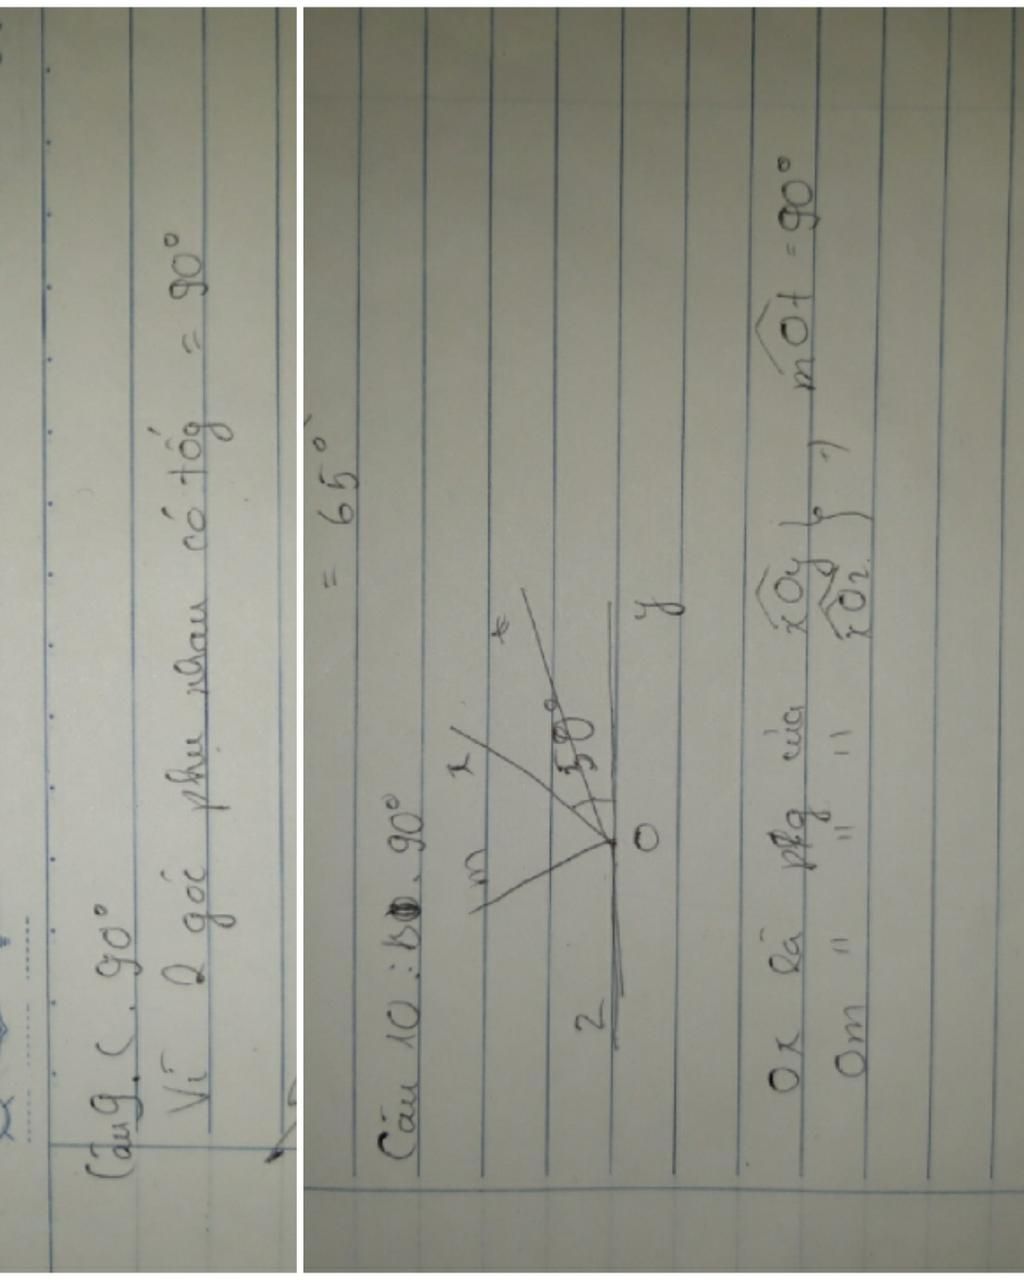 Câu 9. C. 90°
Vì 2 góc phụ nhau có tổg = 90°
= 65°
Câu 10 : B. 90°
m
x
t
50°
z
O
y
Ox là pg của xOy } mOt = 90°
Om " " " xOz